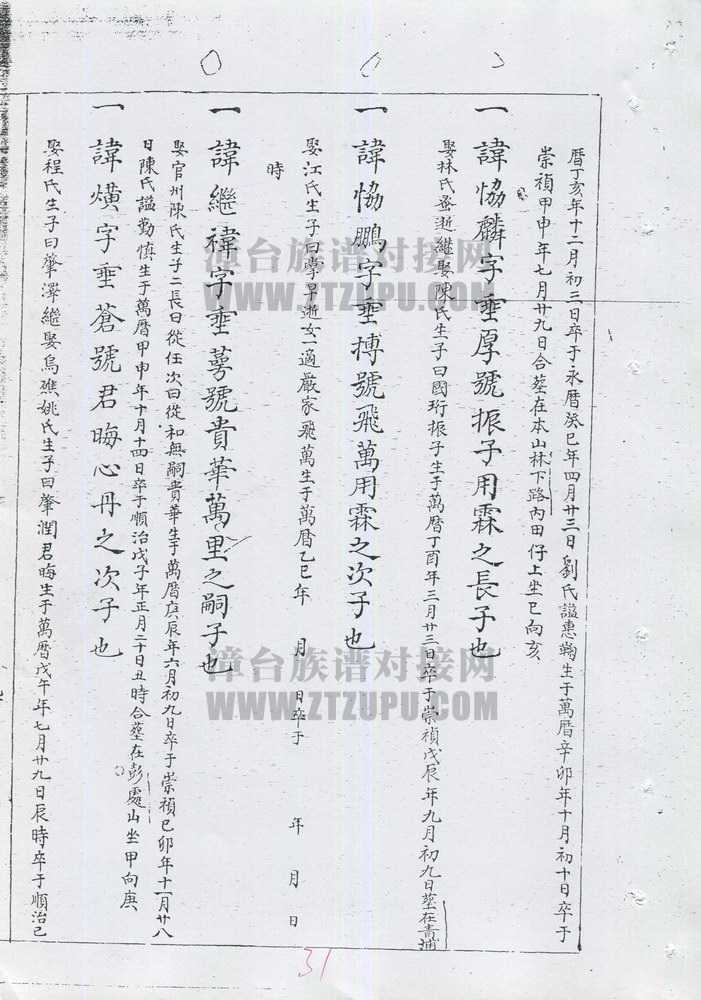 曆丁亥年十二月初三日卒于永曆癸巳年四月廿三日劉氏謚惠鞠生于萬曆辛卯年十月初十日卒于
崇禎甲申年七月廿九日合塟在本山林下路內田仔上坐巳向亥
一諱協麟字垂厚號振子用霖之長子也
娶林氏蚤逝繼娶陳氏生子曰國珩振子生于萬曆丁酉年三月廿三日卒于崇禎戊辰年九月初九日塟在青埔
一諱協鵬字垂摶號飛萬用霖之次子也
娶江氏生子曰學早逝女一適嚴家飛萬生于萬曆乙巳年 月 日卒于 年 月 日
時
一諱繼禕字垂萼號貴華萬里之嗣子也
娶官州陳氏生子二長曰從任次曰從和無嗣貴華生于萬曆庚辰年六月初九日卒于崇禎己卯年十一月廿八
日陳氏謚勤慎生于萬曆甲申年十月十四日卒于順治戊子年正月二十日丑時合塟在彭處山坐甲向庚
一諱熿字垂蒼號君晦心丹之次子也
娶程氏生子曰肇澤繼娶烏礁姚氏生子曰肇潤君晦生于萬曆戊午年七月廿九日辰時卒于順治己
31
漳台族谱对接网
WWW.ZTZUPU.COM
漳台族谱对接网
WWW.ZTZUPU.COM